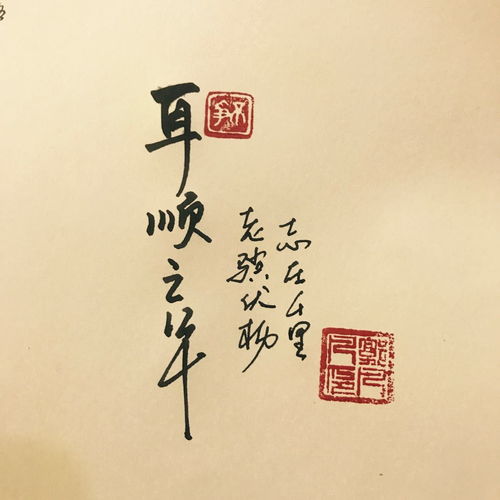 耳顺之年
不争
老骥伏枥
志在千里